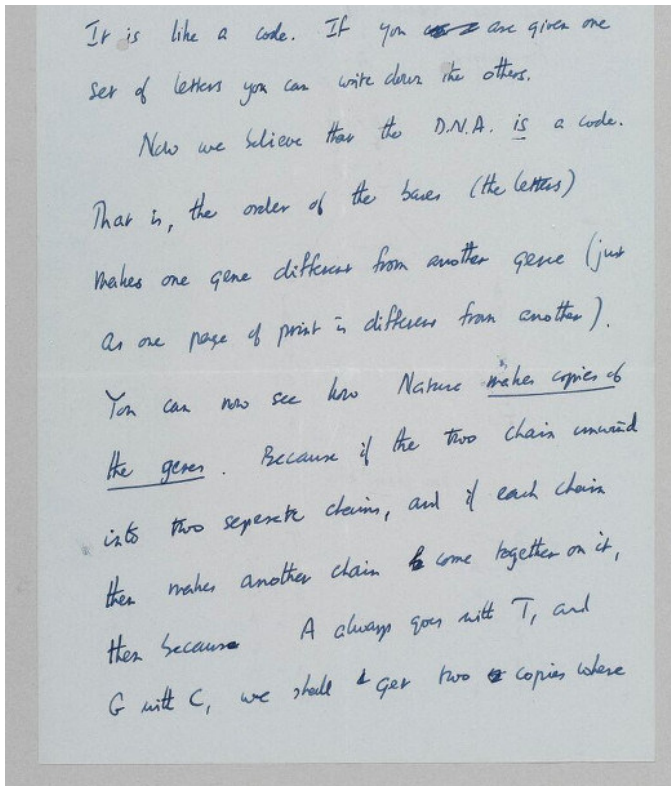 It is like a code. If you are given one
set of letters you can write down the others.
Now we believe that the D.N.A. is a code.
That is, the order of the bases (the letters)
makes one gene different from another gene (just
as one page of print is different from another).
You can now see how Nature makes copies of
the genes. Because if the two chain unwind
into two separate chains, and if each chain
then makes another chain come together on it,
then because A always goes with T, and
G with C, we shall get two copies where